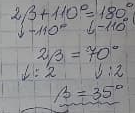 2β+110°=180°
↓-110° ↓-110°
2β=70°
↓:2 ↓:2
β=35°